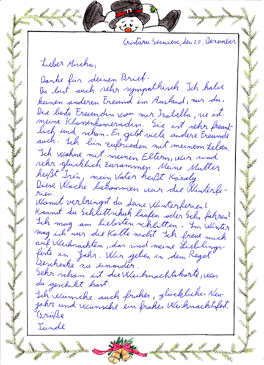 Cristuru Secuiesc, den 20. Dezember
Lieber Mischa,
Danke für deinen Brief.
Du bist auch sehr sympathisch. Ich habe
keinen anderen Freund in Russland, nur du.
Die beste Freundin von mir Isabella, sie ist
meine Klassenkameradin. Sie ist sehr freund-
lich und schön. Es gibt viele andere Freunde
auch. Ich bin zufrieden mit meinem Leben.
Ich wohne mit meinen Eltern, wir sind
sehr glücklich zusammen. Meine Mutter
heißt Irén, mein Vater heißt
Diese Woche bekommen wir die Winterfe-
rien.
Womit verbringst du deine Winterferien?
Kannst du Schlittschuh laufen oder Schi fahren?
Ich mag am liebsten schlitten. Im Winter
mag ich nur die Kälte nicht. Ich freue mich
auf Weihnachten, das sind meine Lieblings-
feste im Jahr. Wir geben in der Regel
Geschenke zu einander.
Sehr schön ist die Weihnachtskarte, was
du geschickt hast.
Ich wünsche auch frohes, glückliches Neu-
jahr und wünsche ein frohes Weihnachtsfest.
Grüße
Tünde